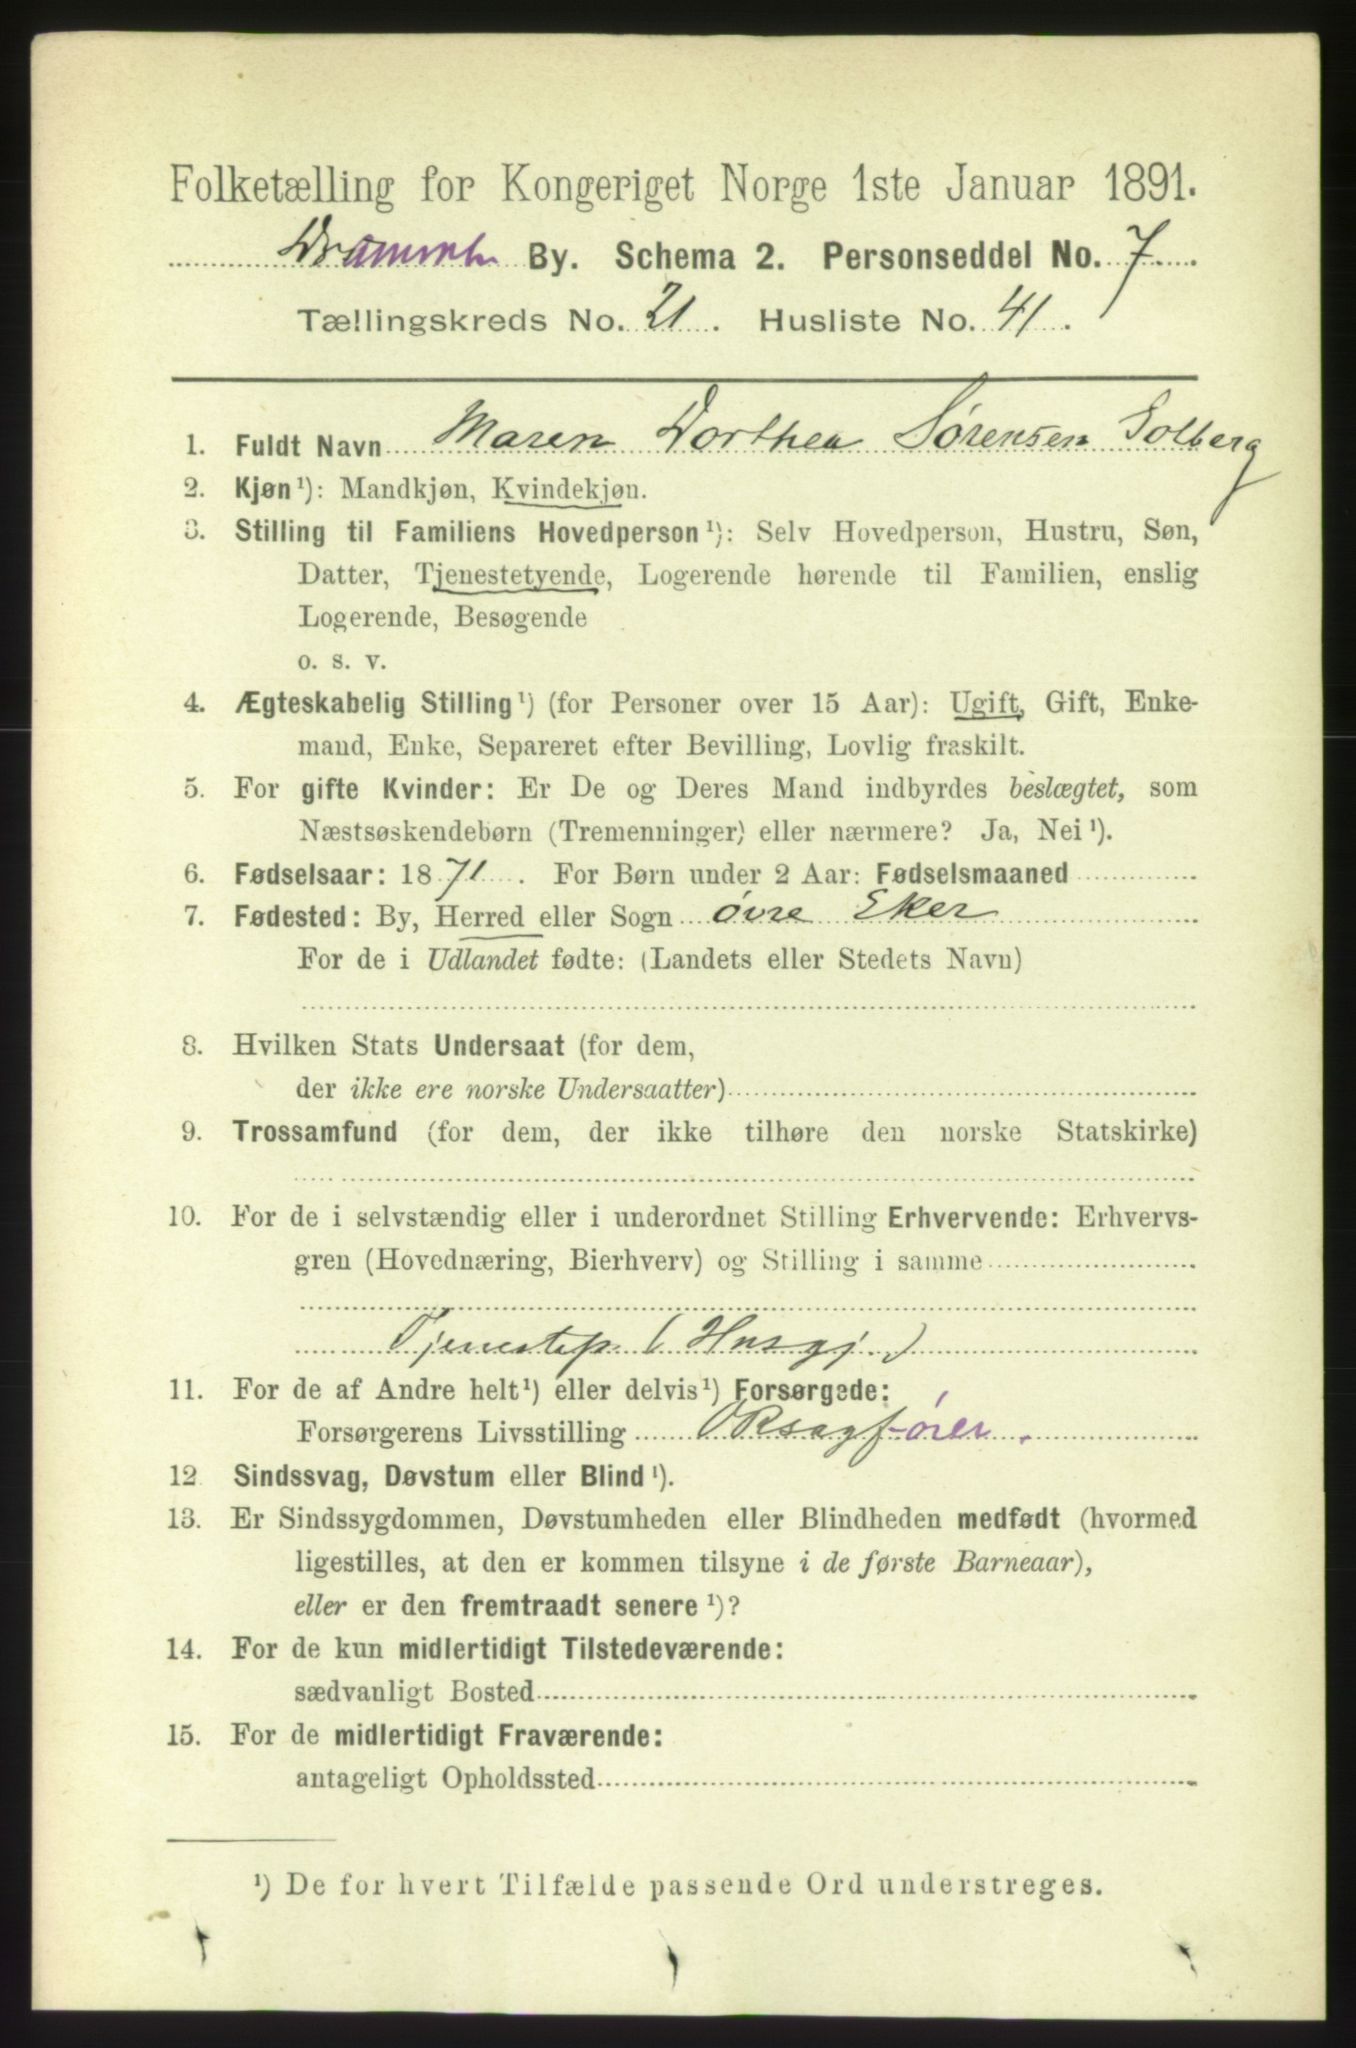 Folketælling for Kongeriget Norge 1ste Januar 1891.
Drammen By. Schema 2. Personseddel No. 7.
Tællingskreds No. 21. Husliste No. 41.
1. Fuldt Navn Maren Dorthea Sørensen Solberg
2. Kjøn¹): Mandkjøn, Kvindekjøn.
3. Stilling til Familiens Hovedperson¹): Selv Hovedperson, Hustru, Søn,
Datter, Tjenestetyende, Logerende hørende til Familien, enslig
Logerende, Besøgende
o. s. v.
4. Ægteskabelig Stilling¹) (for Personer over 15 Aar): Ugift, Gift, Enke-
mand, Enke, Separeret efter Bevilling, Lovlig fraskilt.
5. For gifte Kvinder: Er De og Deres Mand indbyrdes beslægtet, som
Næstsøskendebørn (Tremenninger) eller nærmere? Ja, Nei¹).
6. Fødselsaar: 1871. For Børn under 2 Aar: Fødselsmaaned
7. Fødested: By, Herred eller Sogn øvre Eker
For de i Udlandet fødte: (Landets eller Stedets Navn)
8. Hvilken Stats Undersaat (for dem,
der ikke ere norske Undersaatter)
9. Trossamfund (for dem, der ikke tilhøre den norske Statskirke)
10. For de i selvstændig eller i underordnet Stilling Erhvervende: Erhvervs-
gren (Hovednæring, Bierhverv) og Stilling i samme
Tjenestep (Husgj.)
11. For de af Andre helt¹) eller delvis¹) Forsørgede:
Forsørgerens Livsstilling ORsagfører.
12 Sindssvag, Døvstum eller Blind¹).
13. Er Sindssygdommen, Døvstumheden eller Blindheden medfødt (hvormed
ligestilles, at den er kommen tilsyne i de første Barneaar),
eller er den fremtraadt senere¹)?
14. For de kun midlertidigt Tilstedeværende:
sædvanligt Bosted
15. For de midlertidigt Fraværende:
antageligt Opholdssted
¹) De for hvert Tilfælde passende Ord understreges.